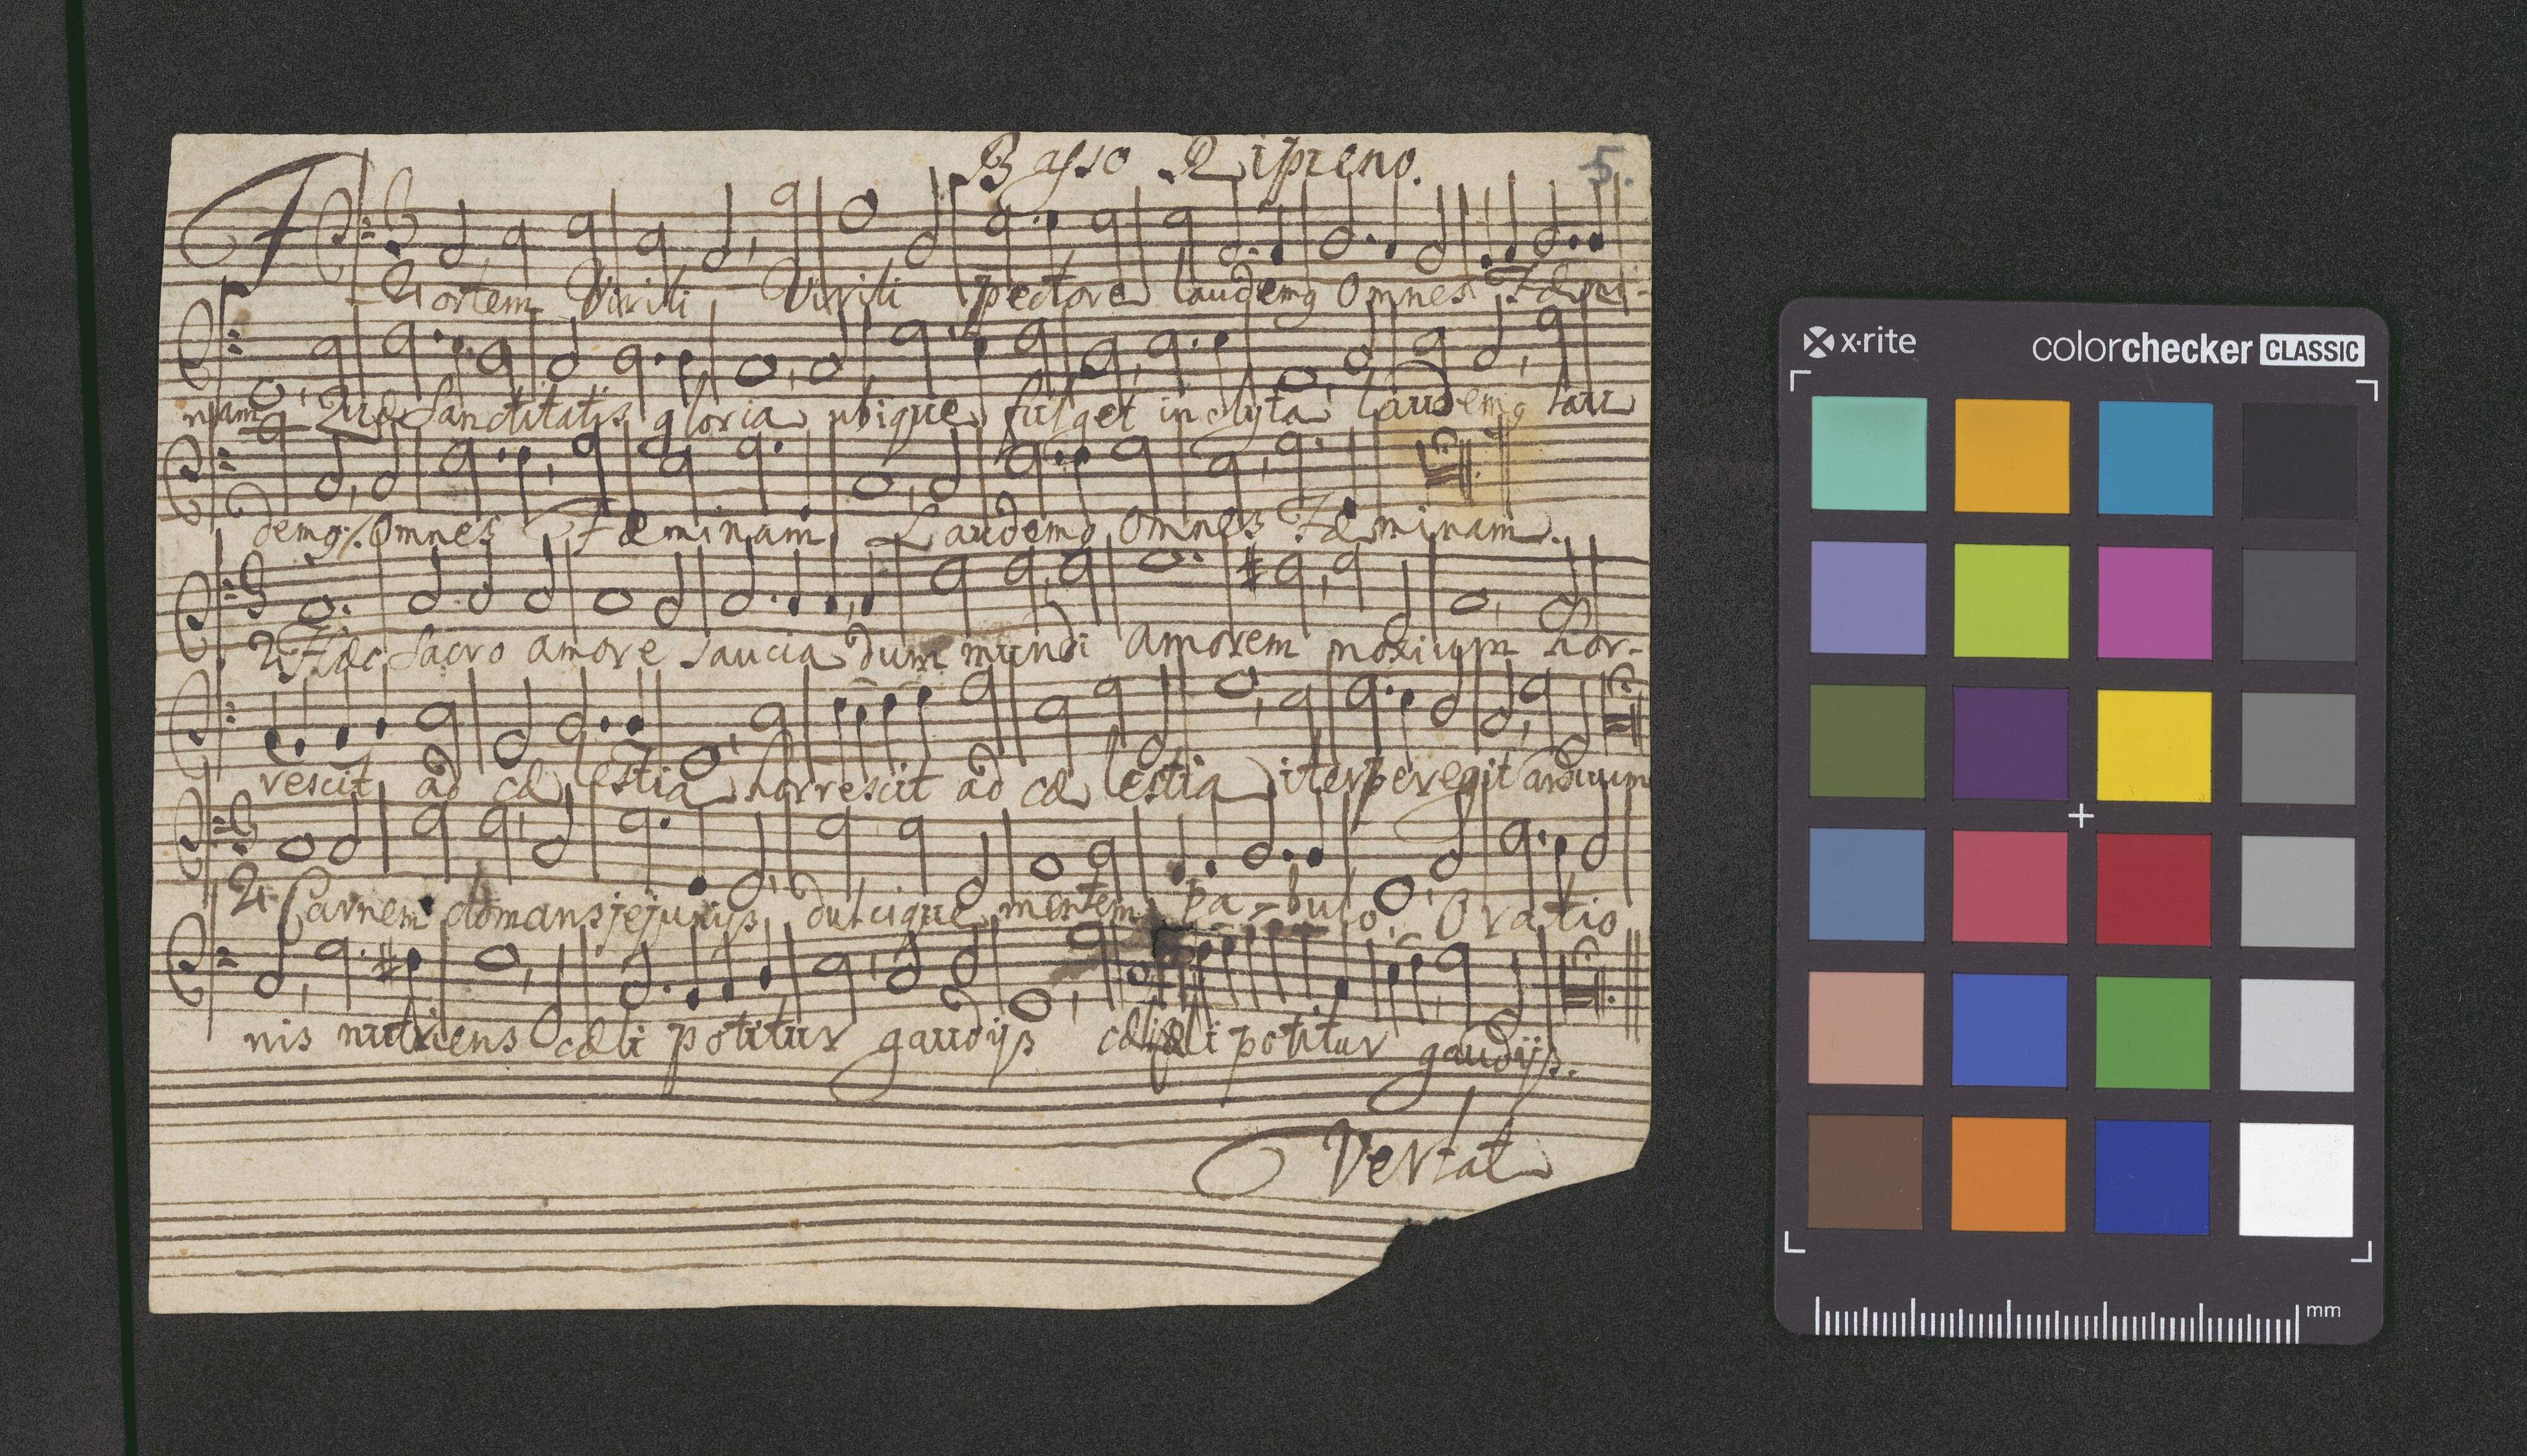 Basso Ripieno. 5.
Fortem Virili Virili pectore laudemq Omnes Fæmi-
nam Quæ Sanctitatis gloria ubique fulget inclyta laudemq lau
demq ·/. Omnes Fæminam Laudemq Omnes Fæminam.
2 Hæc Sacro amore saucia dum mundi amorem noxium hor-
rescit ad cælestia horrescit ad cælestia iter peregit arduum
2. Carnem domans jejunijs dulcique mentem pa-bulo Oratio
nis nutriens cæli potitur gaudijs cæli cæli potitur gaudijs.
Vertat
x·rite colorchecker CLASSIC
mm